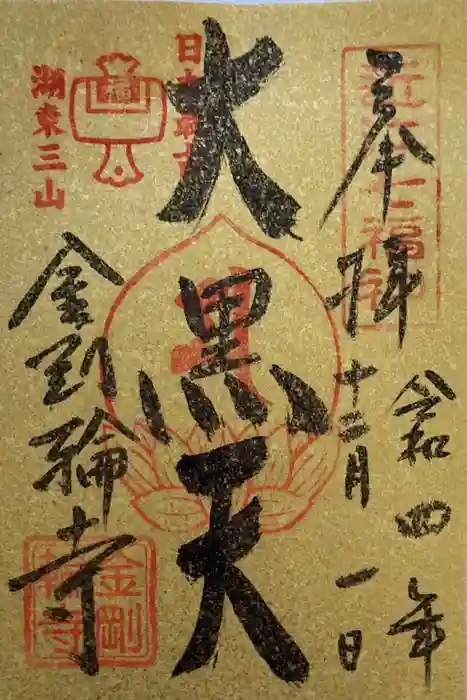 奉拝
令和四年
十二月一日
近江七福神
大黒天
湖東三山
金剛輪寺
金剛輪寺